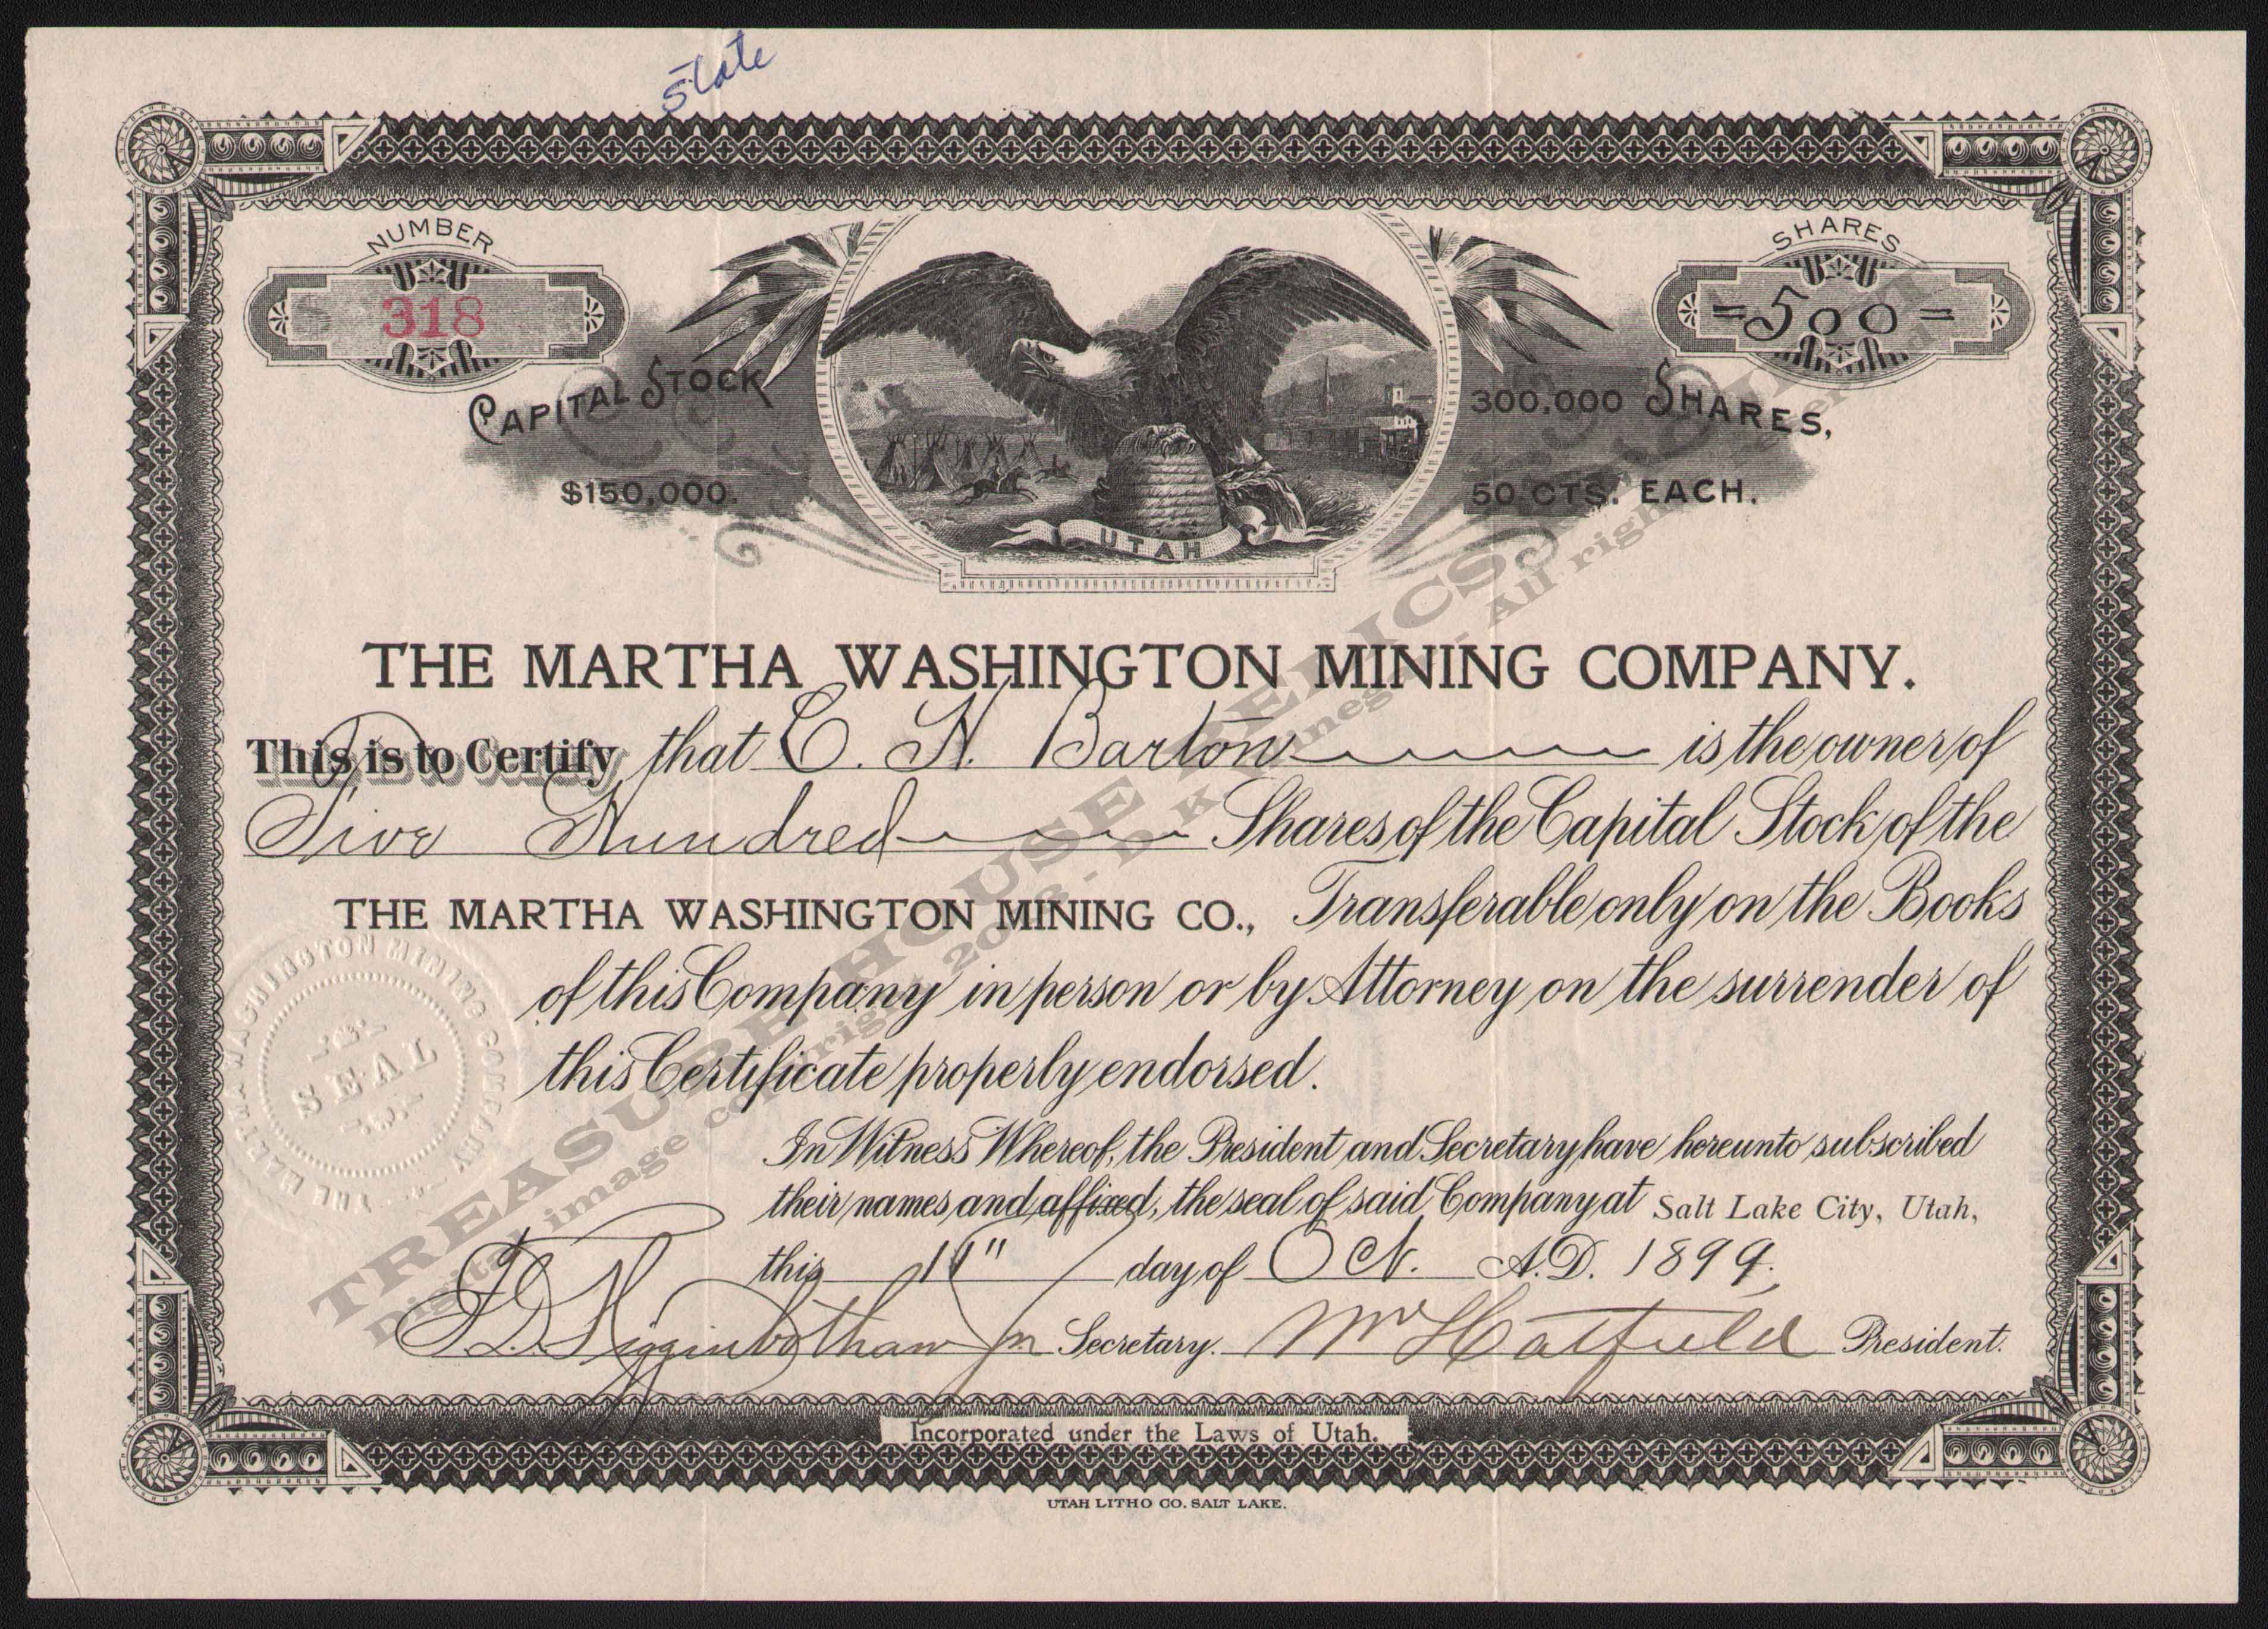 state
NUMBER
318
SHARES
=500=
CAPITAL STOCK
$150,000.
300,000 SHARES,
50 CTS. EACH.
UTAH
THE MARTHA WASHINGTON MINING COMPANY.
This is to Certify that C. H. Barton is the owner of
Five Hundred Shares of the Capital Stock of the
THE MARTHA WASHINGTON MINING CO., Transferable only on the Books
of this Company in person or by Attorney on the surrender of
this Certificate properly endorsed.
THE MARTHA WASHINGTON MINING COMPANY
SEAL
In Witness Whereof, the President and Secretary have hereunto subscribed
their names and affixed, the seal of said Company at Salt Lake City, Utah,
this 11" day of Oct. A.D. 1899.
Higginbotham Jr. Secretary. Wm Hatfield President.
Incorporated under the Laws of Utah.
UTAH LITHO CO. SALT LAKE.
TREASURE HOUSE RELICS
Digital image copyright All rights